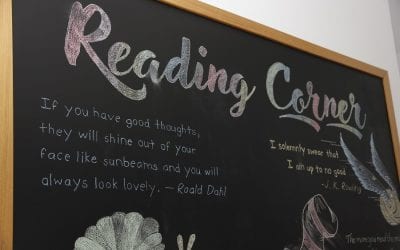 Reading Corner
If you have good thoughts,
they will shine out of your
face like sunbeams and you will
always look lovely. — Roald Dahl
I solemnly swear that
I am up to no good
- J. K. Rowling
The more you read the